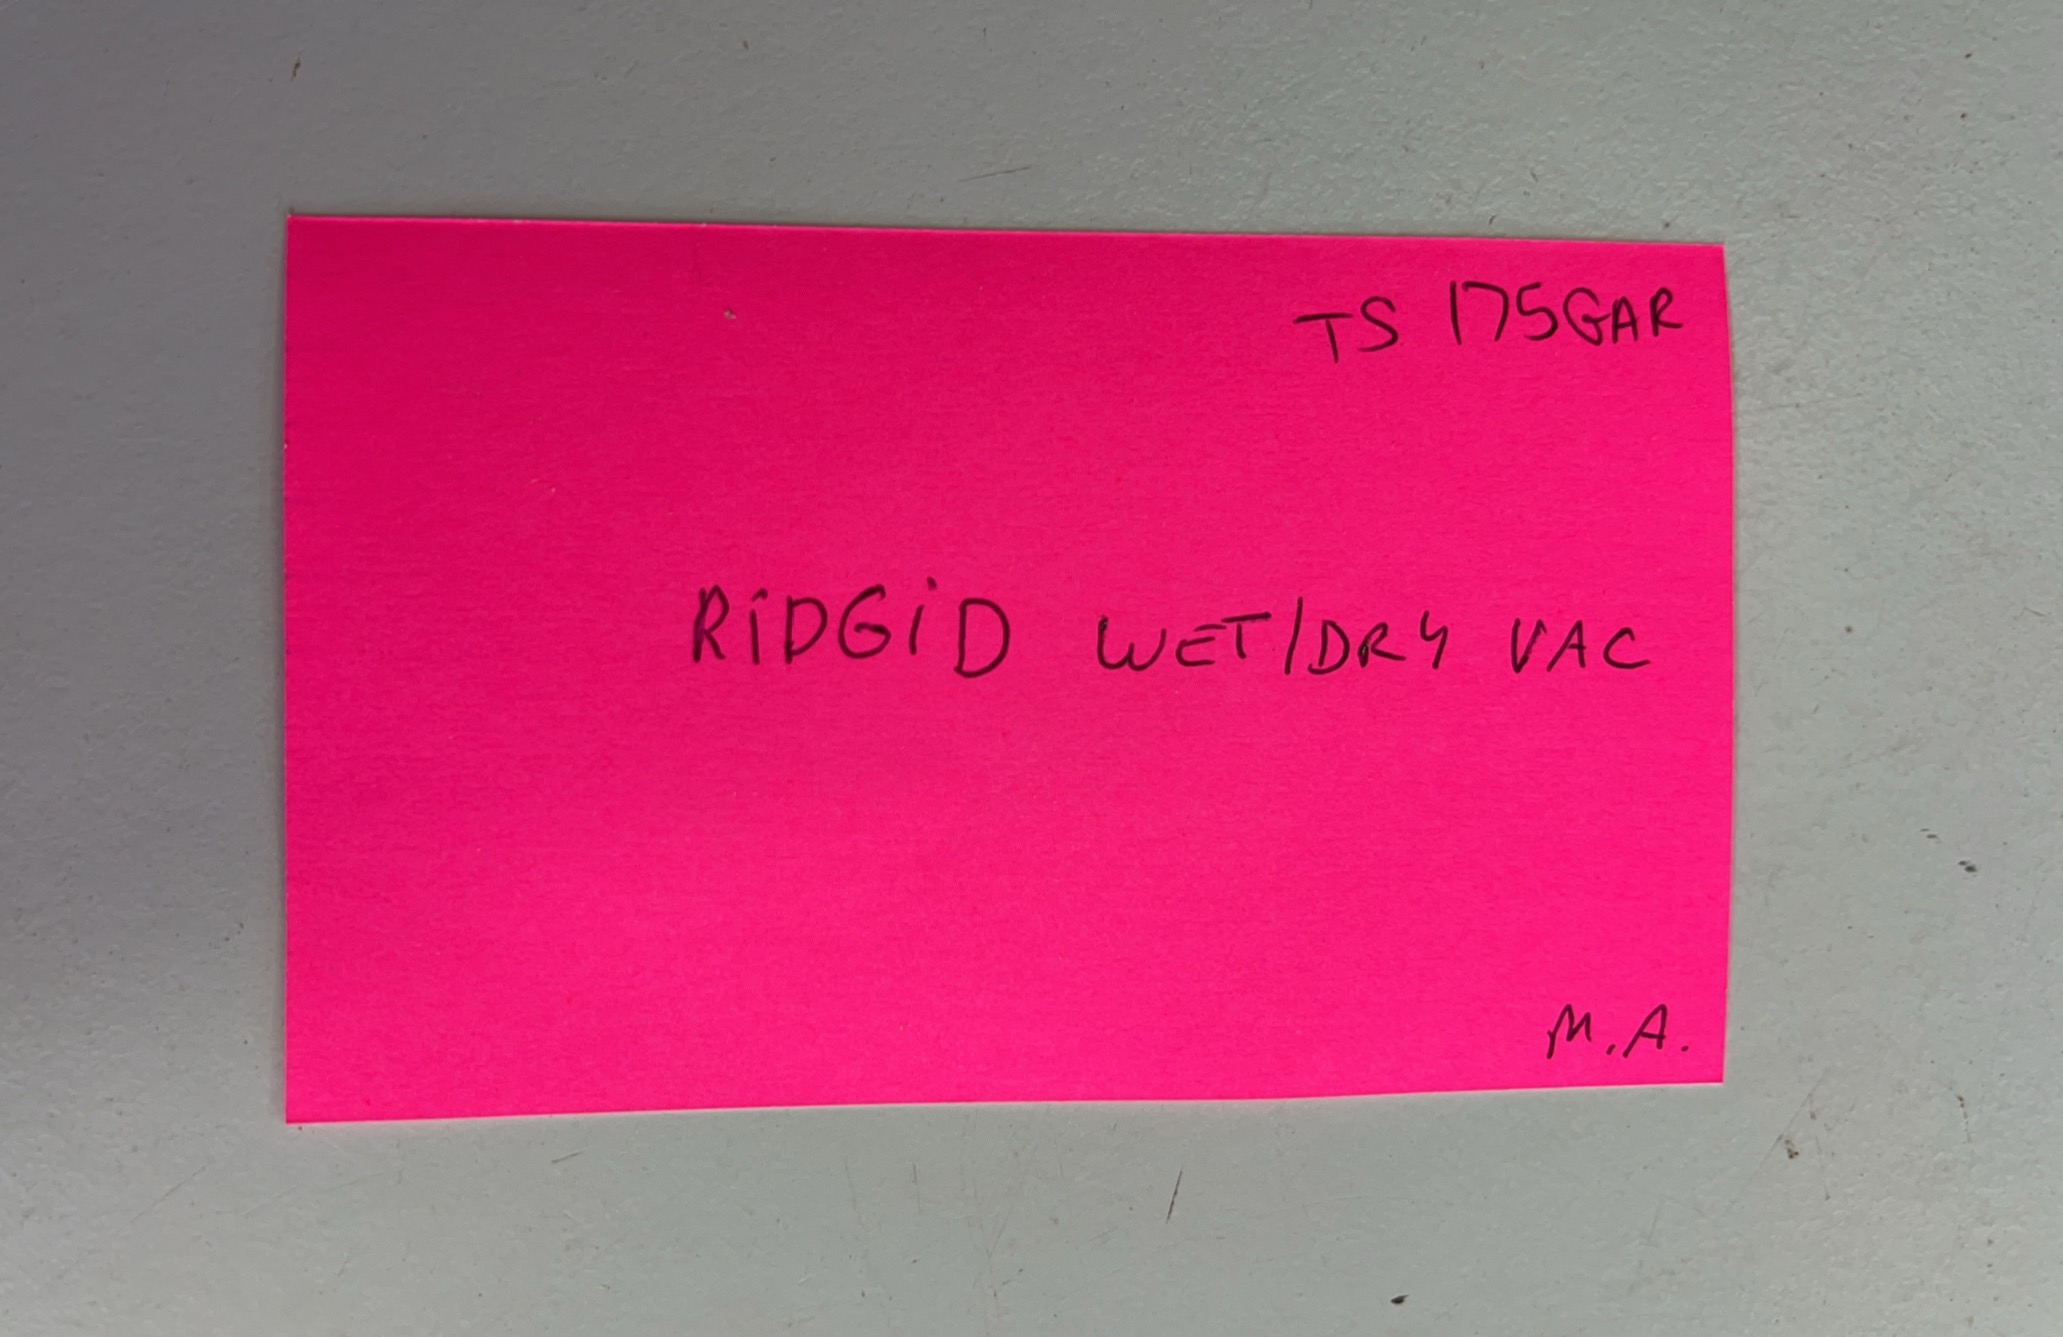 TS 175GAR
RiDGiD WET/DRY VAC
M.A.